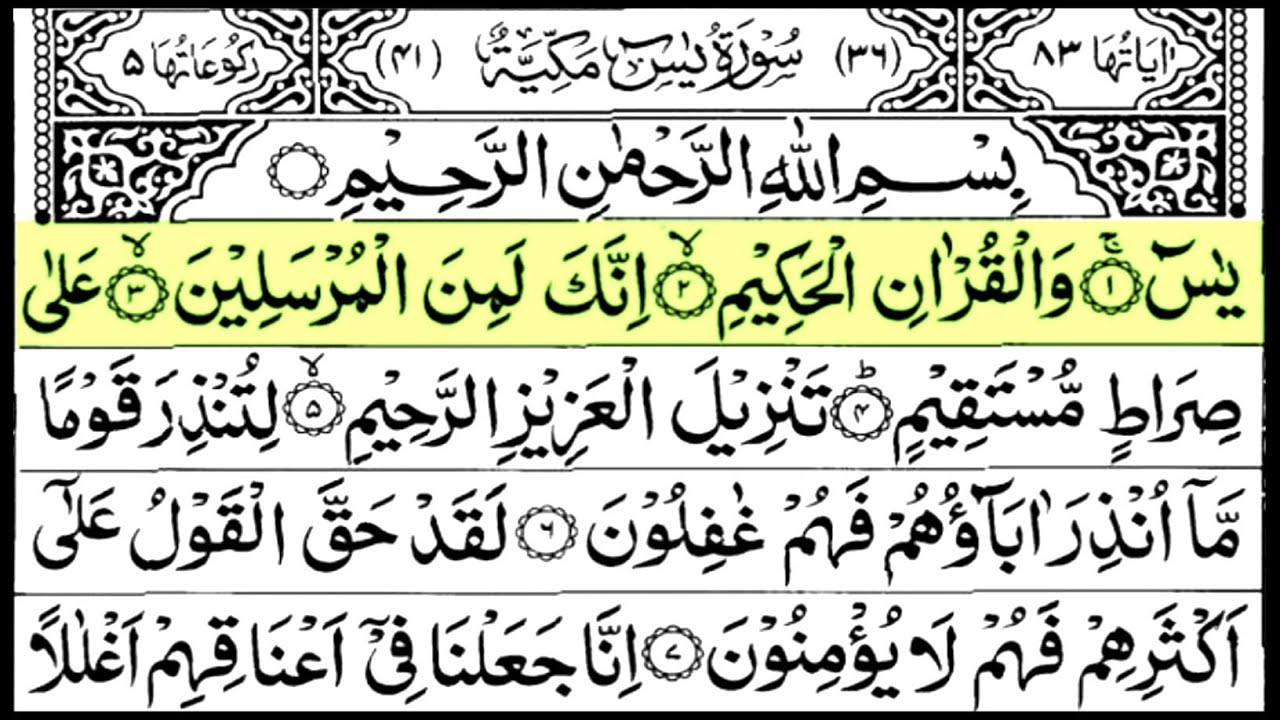 اٰيَاتُهَا ٨٣ (٣٦) سُوْرَةُ يٰسٓ مَكِّيَّةٌ (٤١) رُكُوْعَاتُهَا ۵
بِسْمِ اللهِ الرَّحْمٰنِ الرَّحِيْمِ
يٰسٓ ۚ﴿۱﴾ وَالْقُرْاٰنِ الْحَكِيْمِ ۙ﴿۲﴾ اِنَّكَ لَمِنَ الْمُرْسَلِيْنَ ۙ﴿۳﴾ عَلٰى
صِرَاطٍ مُّسْتَقِيْمٍ ؕ﴿۴﴾ تَنْزِيْلَ الْعَزِيْزِ الرَّحِيْمِ ۙ﴿۵﴾ لِتُنْذِرَ قَوْمًا
مَّاۤ اُنْذِرَ اٰبَآؤُهُمْ فَهُمْ غٰفِلُوْنَ ﴿۶﴾ لَقَدْ حَقَّ الْقَوْلُ عَلٰۤى
اَكْثَرِهِمْ فَهُمْ لَا يُؤْمِنُوْنَ ﴿۷﴾ اِنَّا جَعَلْنَا فِيْۤ اَعْنَاقِهِمْ اَغْلٰلًا